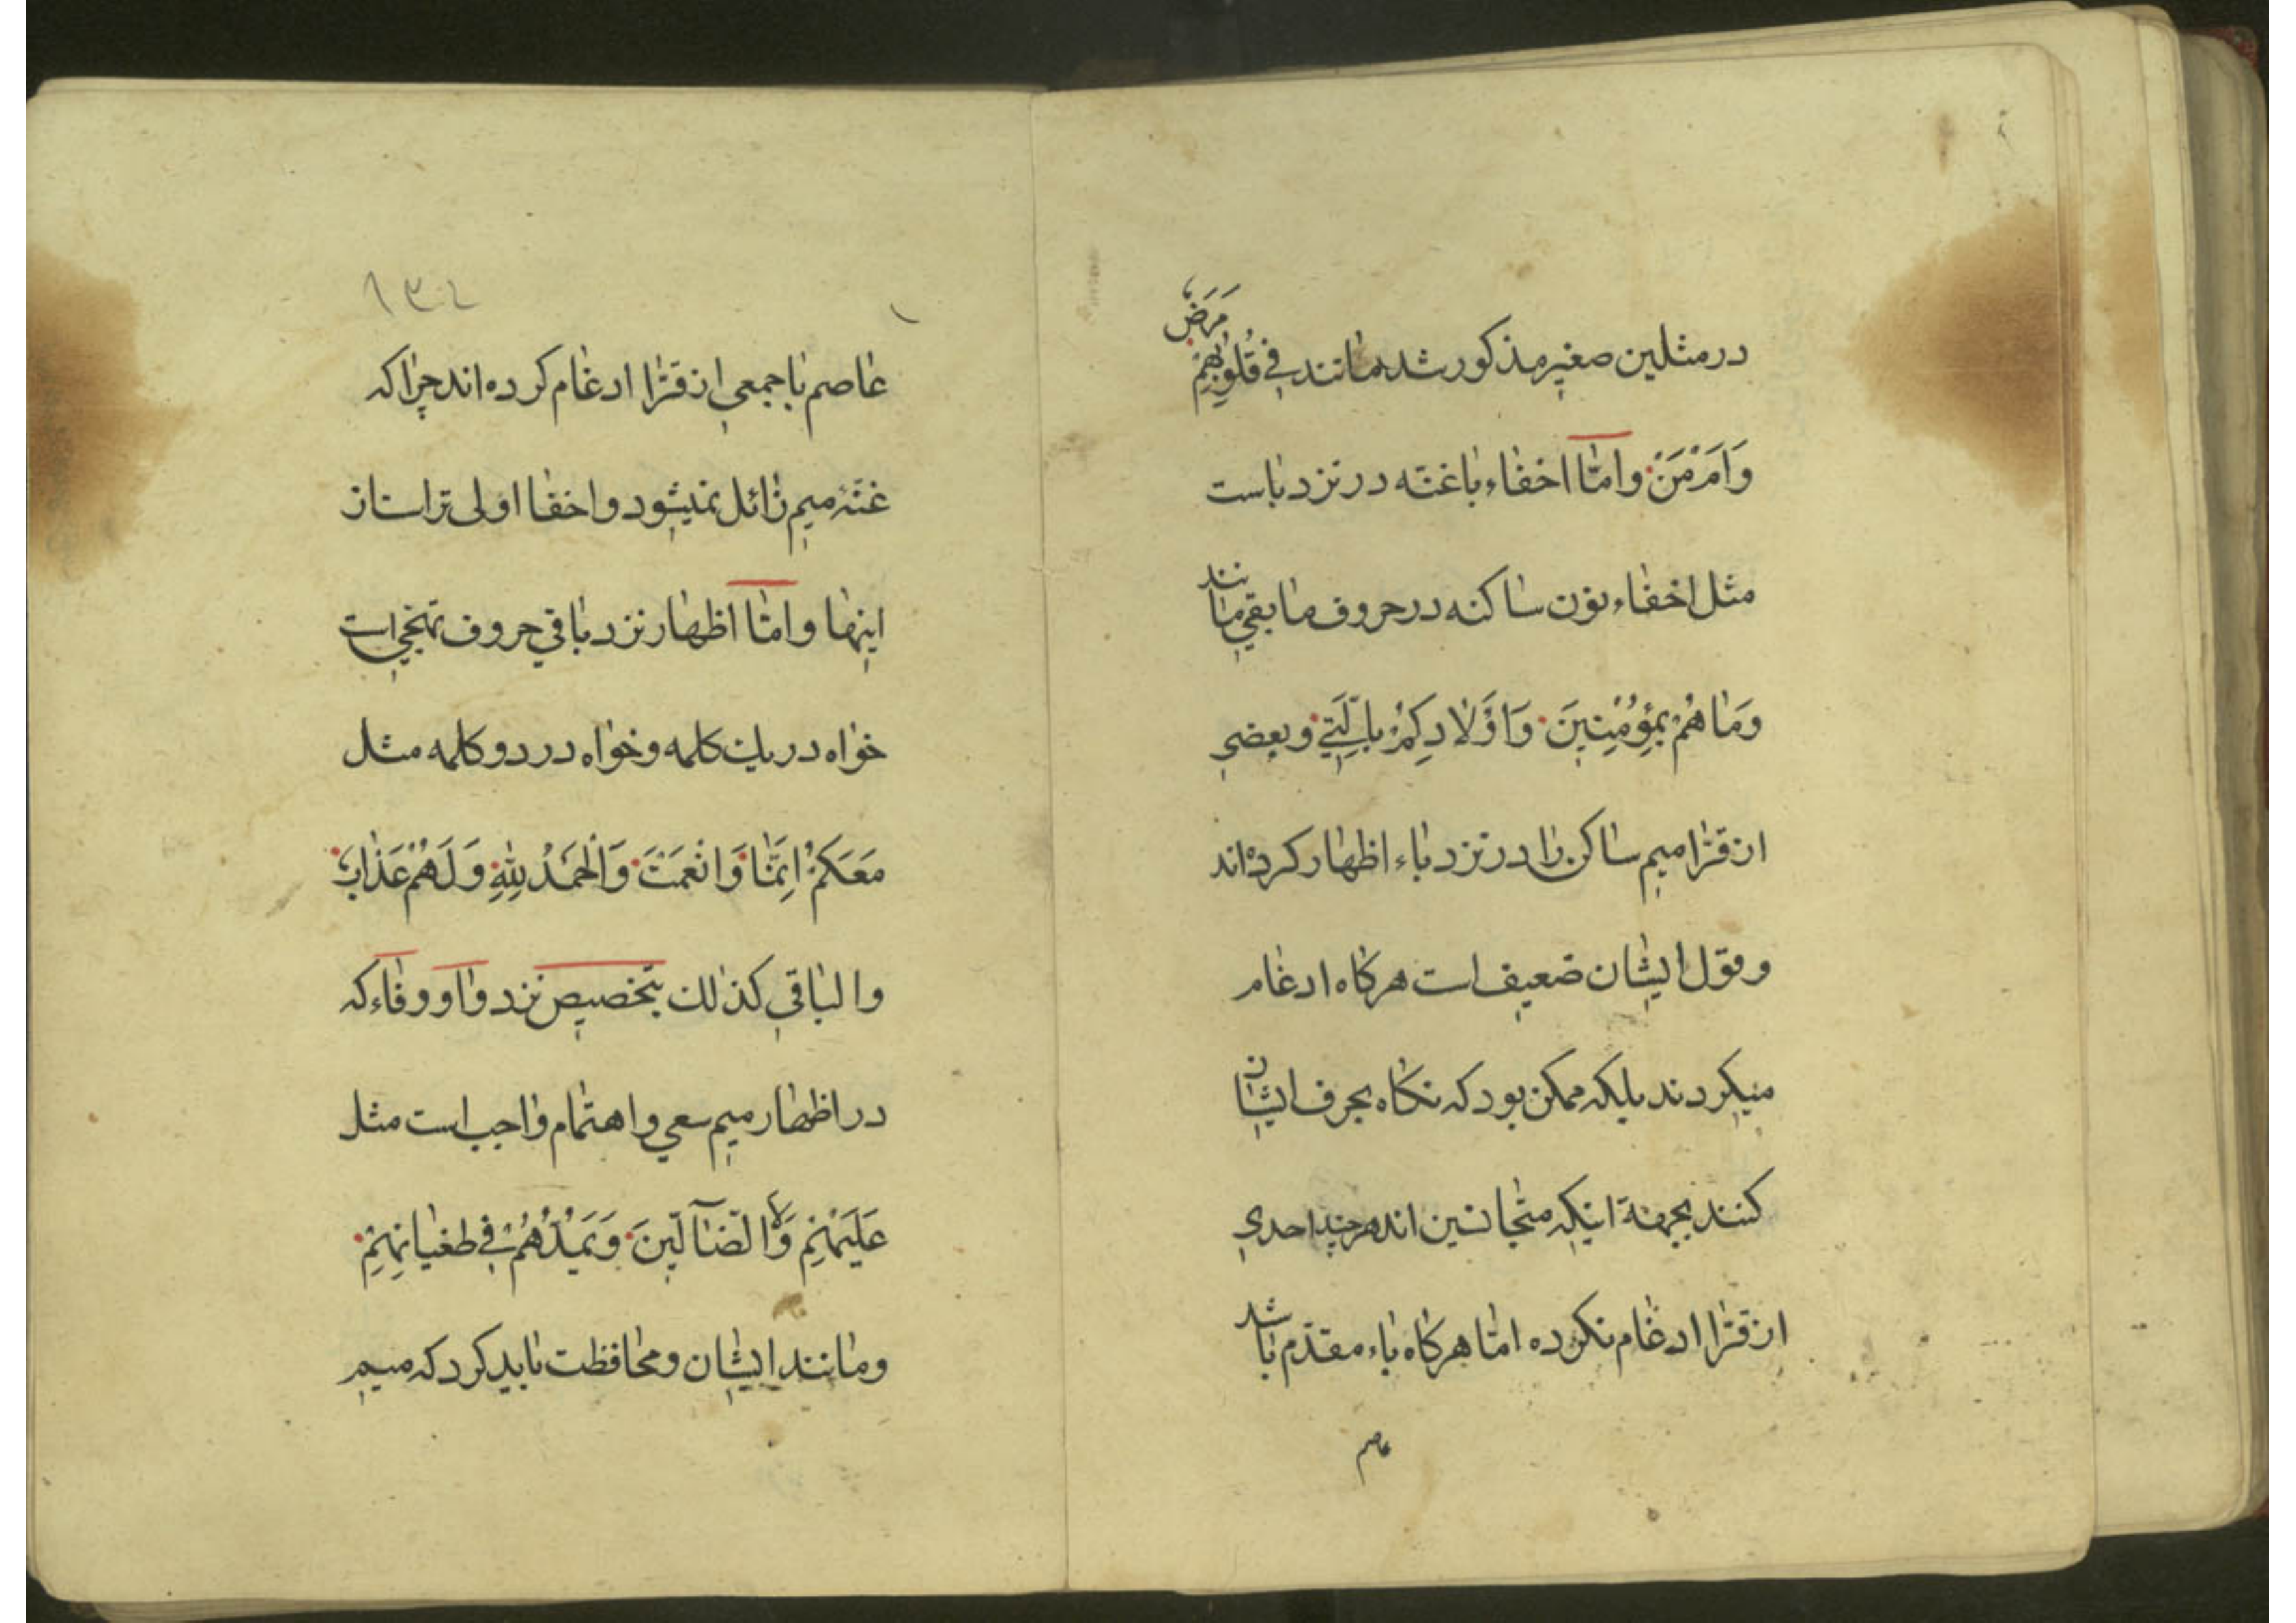 در مثلین صغیر مذکور شد مانند فِي قُلُوبِهِمْ مَرَضٌ
وَاَمْ مَنْ وامّا اخفاء باغنّه در نزد با است
مثل اخفاء نون ساکنه در حروف ما بقی مانند
وَمَا هُمْ بِمُؤْمِنِينَ وَاَوْلَادِكُمْ بِالَّتِي وبعضی
از قرّا میم ساکن را در نزد باء اظهار کرده اند
وقول ایشان ضعیف است هرکاه ادغام
میکردند بلکه ممکن بود که نکاه بحرف ایشان
کنند بجهة اینکه متجانسین اند هرچند احدی
از قرّا ادغام نکرده امّا هرکاه باء مقدّم باشد
عاصم
۱۳۴
عاصم باجمعی از قرّا ادغام کرده اند چرا که
غنّهٔ میم زائل نمیشود واخفا اولی تر است از
اینها وامّا اظهار نزد باقی حروف تهجّی است
خواه در یك کلمه وخواه در دو کلمه مثل
مَعَكُمْ اِنَّمَا وَاَنْعَمْتَ وَالْحَمْدُ لِلّٰهِ وَلَهُمْ عَذَابٌ
والباقی کذلك بتخصیص نزد واو وفاء که
در اظهار میم سعی واهتمام واجب است مثل
عَلَيْهِمْ وَلَا الضَّآلِّينَ وَيَمُدُّهُمْ فِي طُغْيَانِهِمْ
ومانند ایشان ومحافظت باید کرد که میم